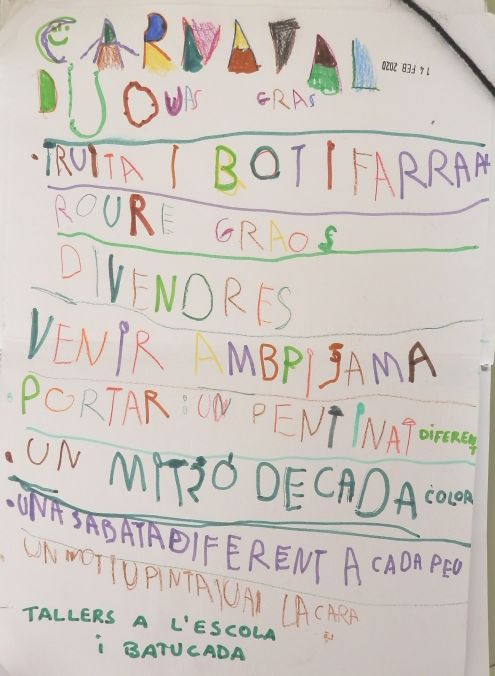 CARNAVAL
14 FEB 2020
DIJOUAS GRAS
·TRUITA I BOTIFARRA
ROURE GRAOS
DIVENDRES
VENIR AMBPIJAMA
PORTAR UN PENTINAT DIFERENT
·UN MITJÓ DE CADA COLOR
·UNA SABATA DIFERENT A CADA PEU
LA CARA
TALLERS A L'ESCOLA
i BATUCADA